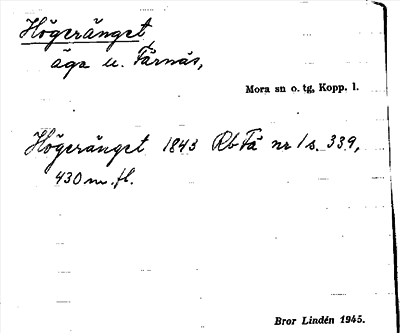 Högeränget,
äga u. Färnäs,
Mora sn o. tg, Kopp. l.
Högeränget 1843 Rb Fä nr 1 s. 339,
430 m. fl.
Bror Lindén 1945.